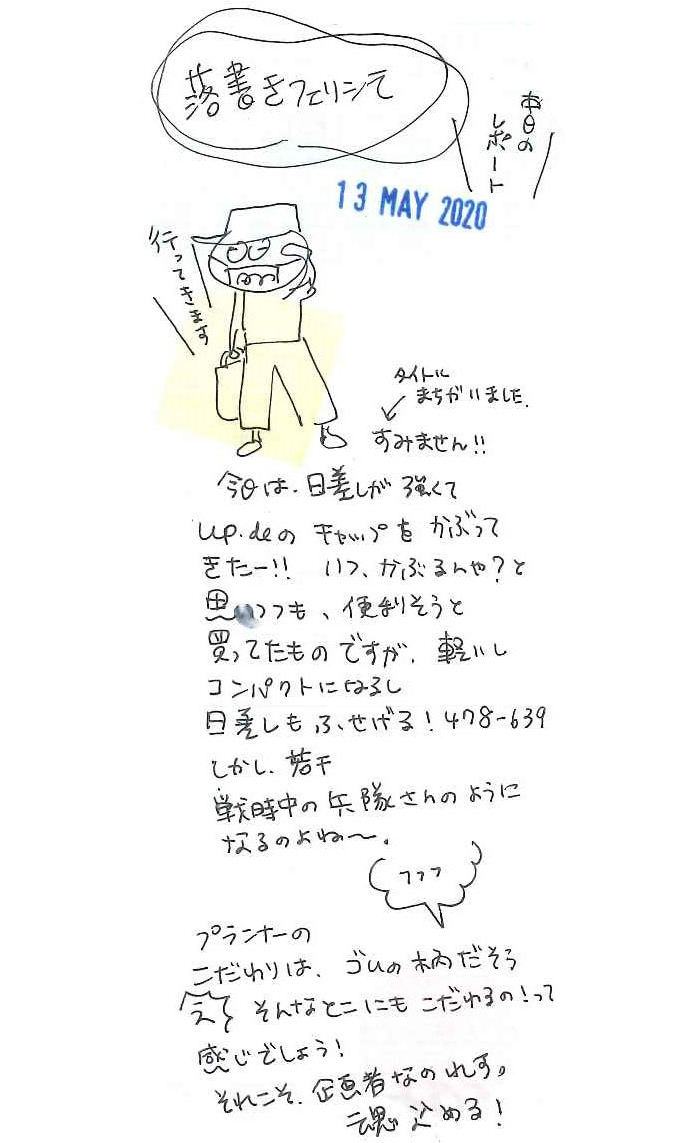 落書きフェリシモ
本日の
レポート
13 MAY 2020
行ってきます
タイトル
まちがいました。
すみません!!
今日は、日差しが強くて
up.deのキャップをかぶって
きたー!! いつ、かぶるんや?と
思いつつも、便利そうと
買ってたものですが、軽いし
コンパクトになるし
日差しもふせげる!478-639
しかし、若干
戦時中の兵隊さんのように
なるのよね〜。
フフフ
プランナーの
こだわりは、ゴムの柄だそう
え〜 そんなとこにもこだわるの!って
感じでしょう!
それこそ、企画者なのれす。
魂込める!